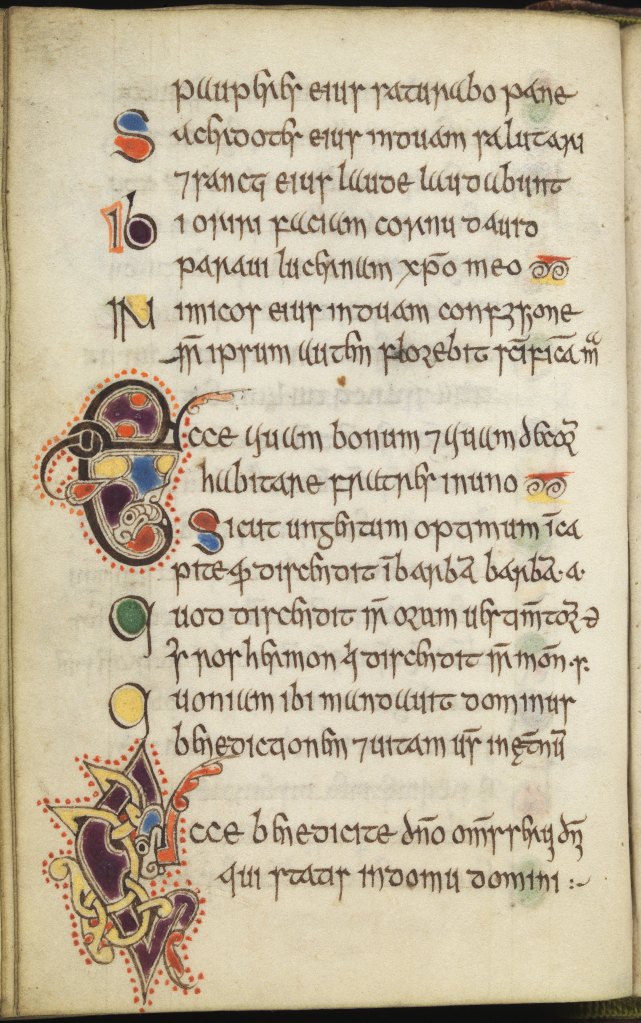 pauperes eius saturabo pane
Sacerdotes eius induam salutari
⁊ sancti eius laude laudabunt
Ibi oriri faciam cornu dauid
paraui lucernam xp̄o meo
Inimicos eius induam confusione
sr̄ ipsum autem florebit sc̄ificā m̄
Ecce quam bonum ⁊ quam
habitare fratres in uno
Sicut ungentum optimum ī ca
pite qđ discendit ī barbā barbā · a ·
Quod discendit in oram
ros hermon q̄ discendit in mon · s ·
Quoniam ibi mandauit dominus
benedictionem ⁊ uitam
Ecce benedicite dn̄o
qui statis in domu domini :-